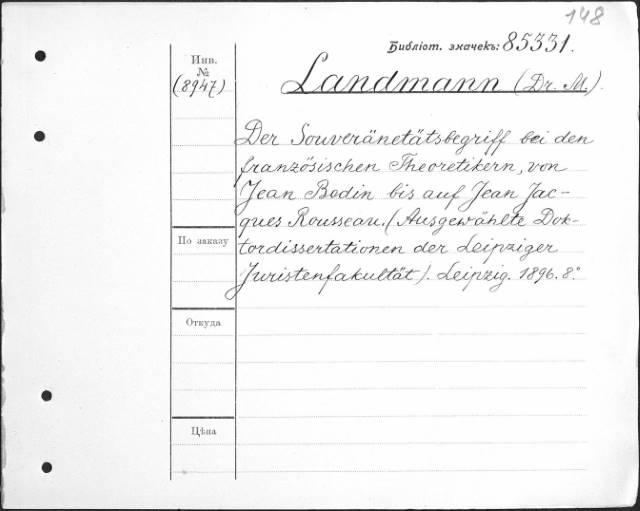 148
Библіот. значекъ: 85331.
Инв.
№
(8947)
Landmann (Dr. M.).
Der Souveränetätsbegriff bei den
französischen Theoretikern, von
Jean Bodin bis auf Jean Jac-
ques Rousseau. (Ausgewählte Dok-
По заказу
tordissertationen der Leipziger
Juristenfakultät). Leipzig. 1896. 8°.
Откуда
Цѣна